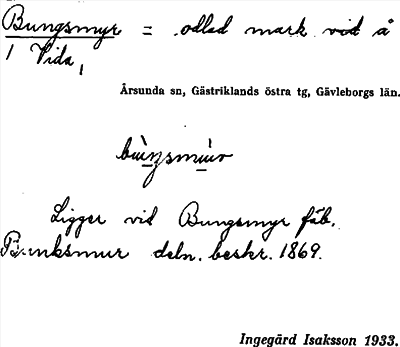 Bungsmyr = odlad mark vid å
/ Vida,
Årsunda sn, Gästriklands östra tg, Gävleborgs län.
Ligger vid Bungsmyr fäb.
deln. beskr. 1869.
Ingegärd Isaksson 1933.